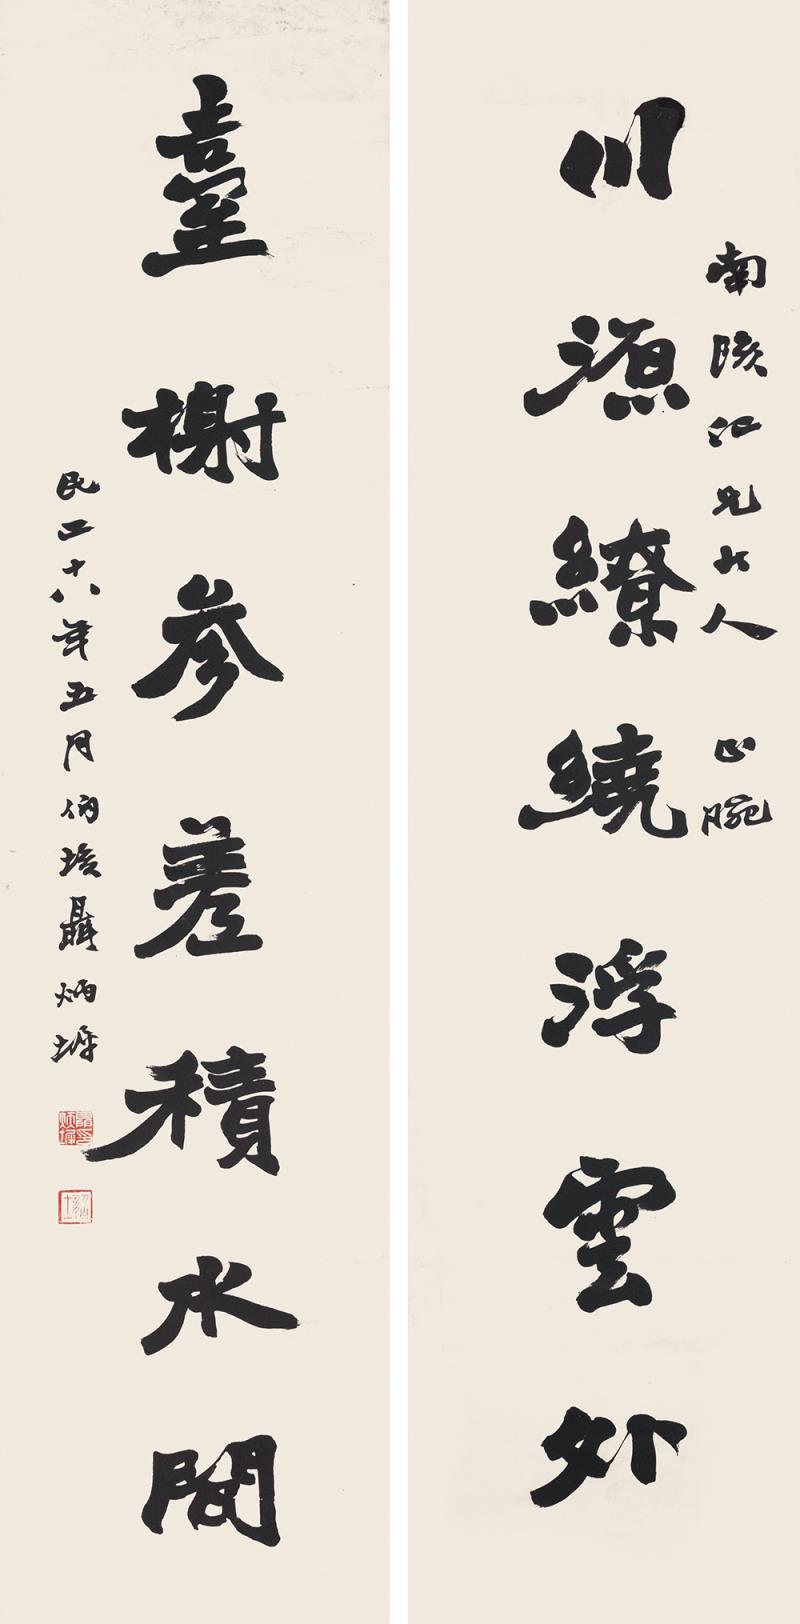 川源繚繞浮雲外
南陔仁兄大人 正腕
臺榭參差積水間
民二十八年五月伯垓聶炳墀